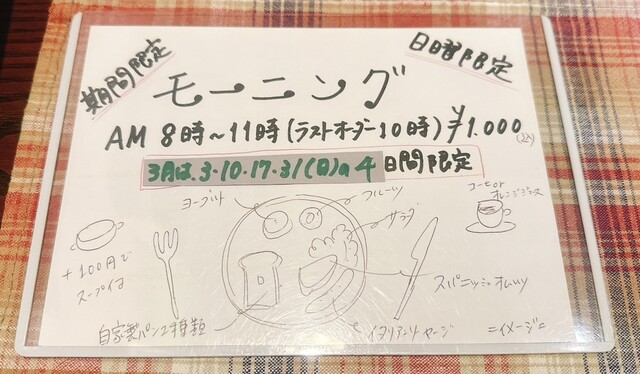 期間限定
日曜限定
モーニング
AM 8時～11時(ラストオーダー10時)¥1.000(込)
3月は、3・10・17・31(日)の4日間限定
ヨーグルト
フルーツ
サラダ
コーヒor
オレンジジュース
+100円で
スープ付
スパニッシュオムレツ
自家製パン2種類
イタリアンソーセージ
=イメージ=